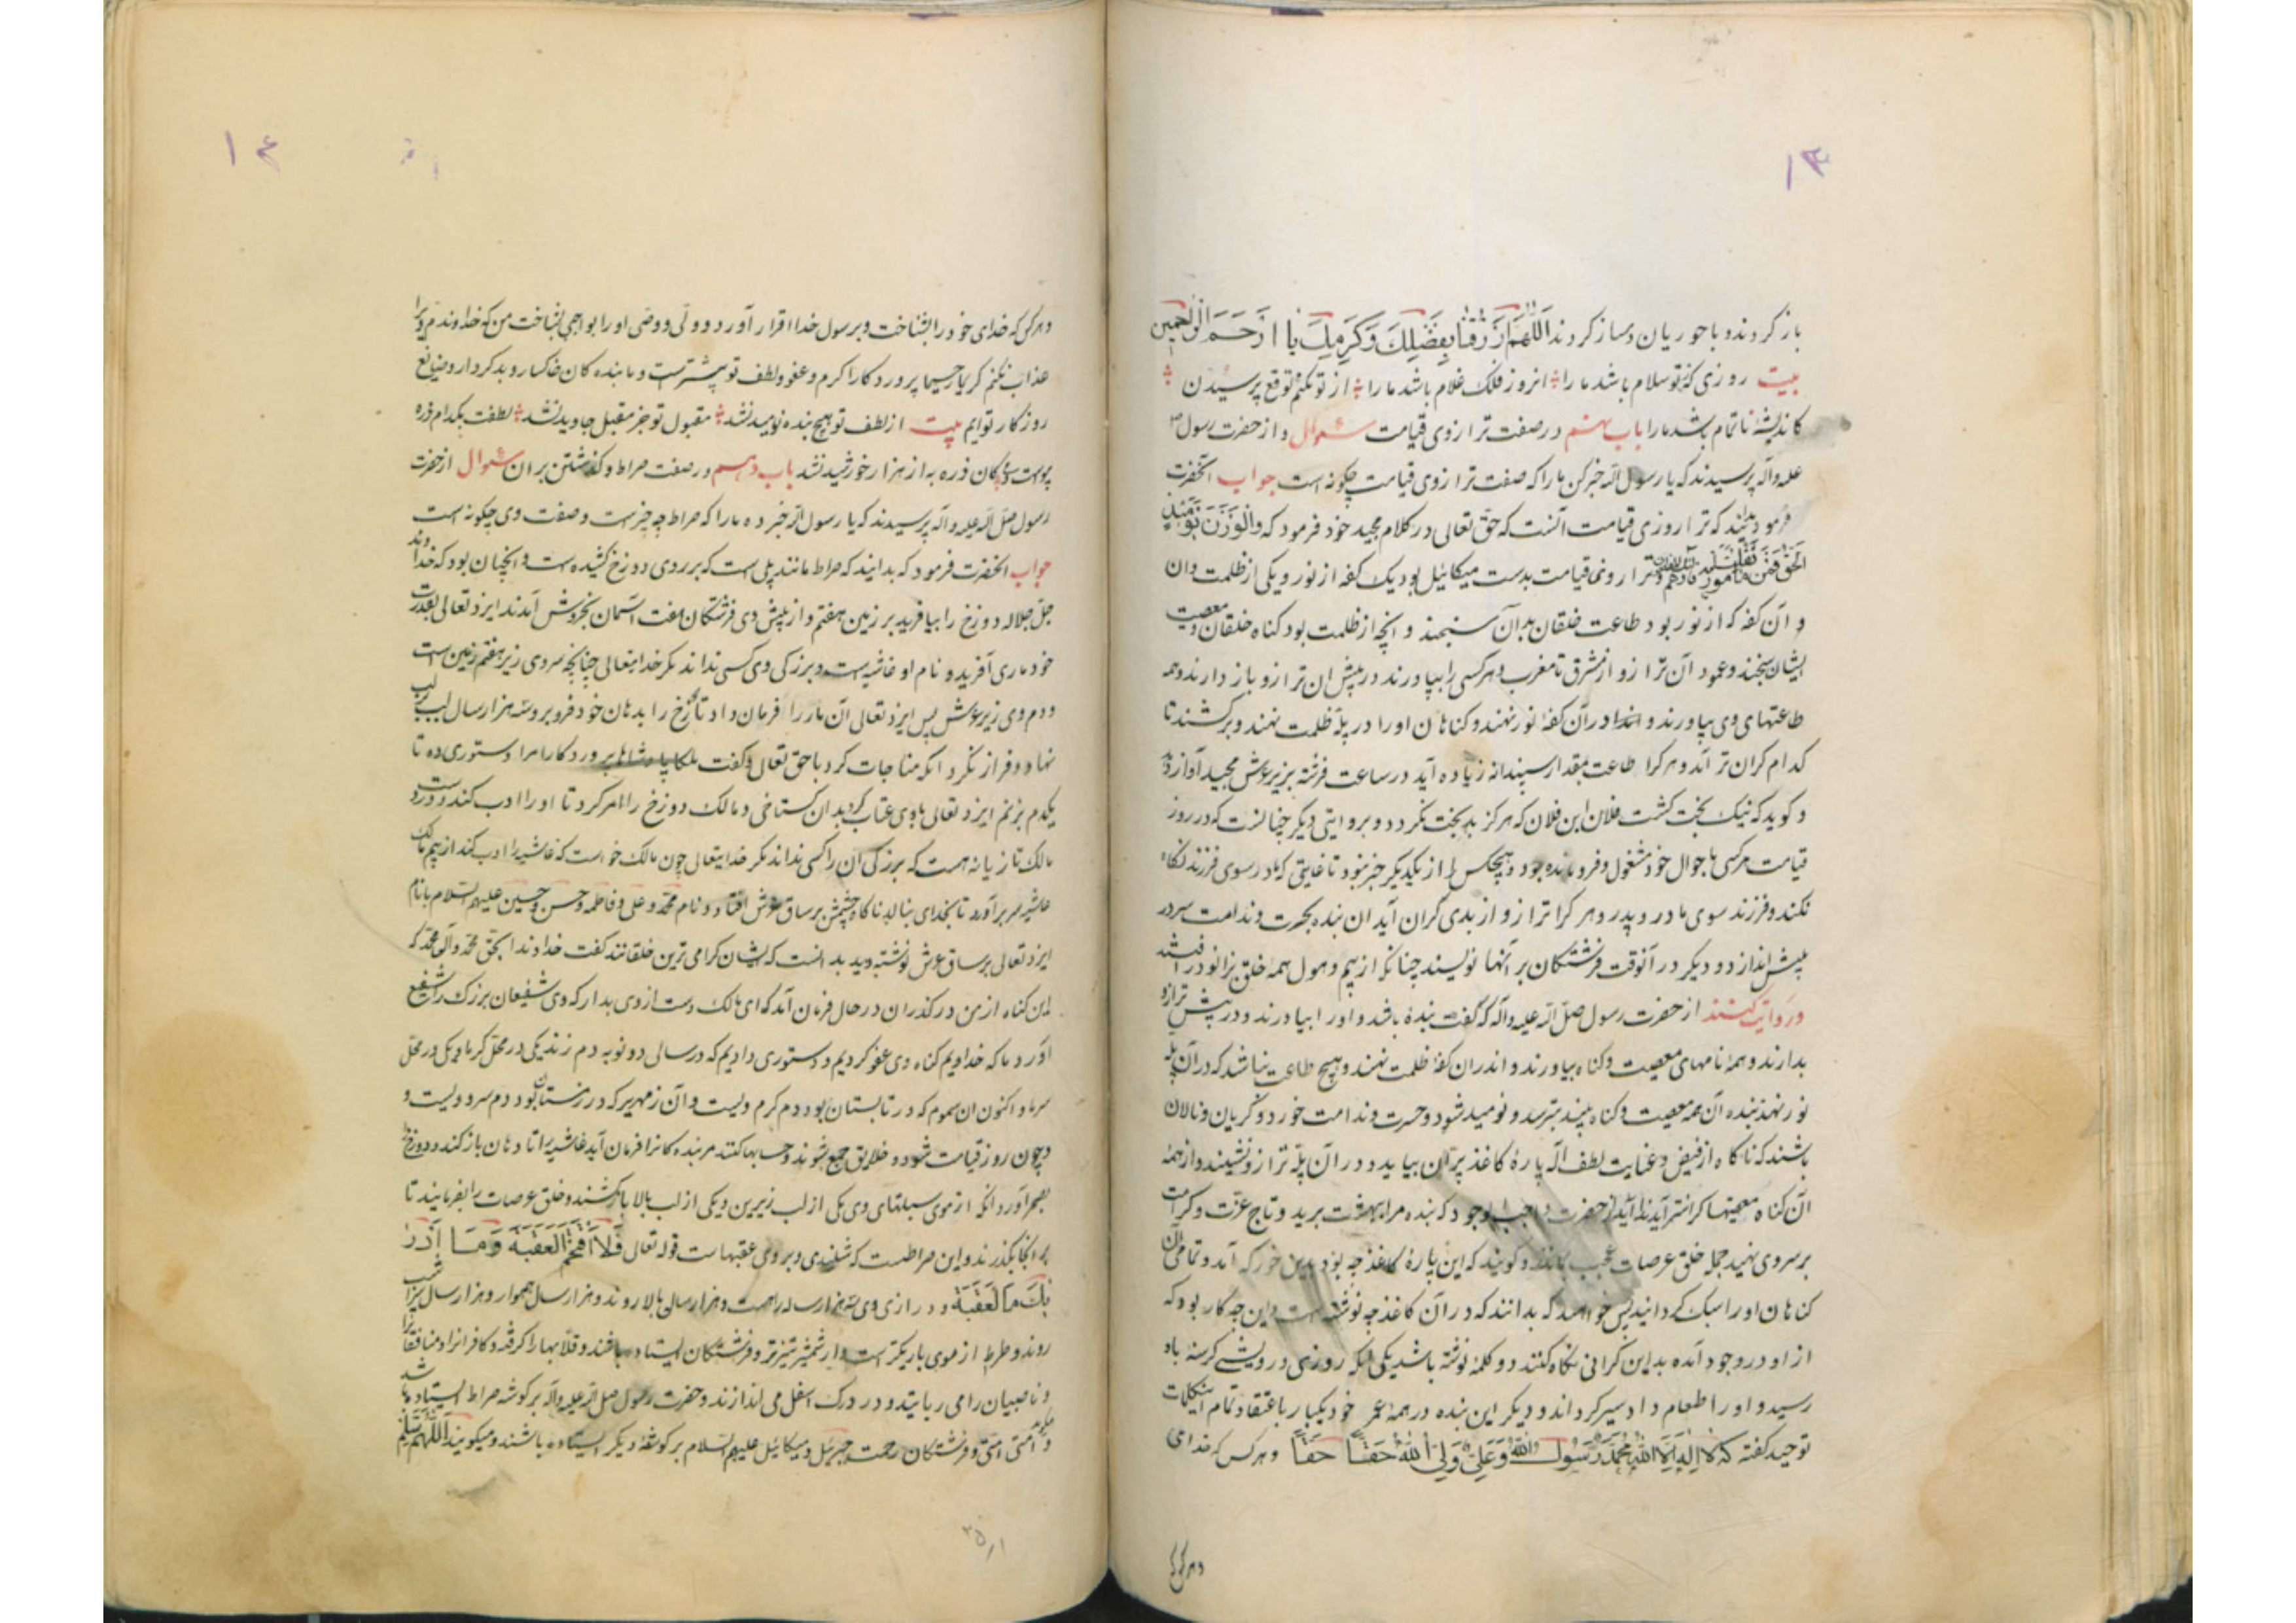 ۱۳
باز کردند و با حوریان دمساز کردند اَللّهُمَّ ارْزُقْنا بِفَضْلِكَ وَكَرَمِكَ يا اَرْحَمَ الرّاحمین
بیت روزی که ز تو سلام باشد ما را انروز فلک غلام باشد ما را از تو نکنم توقع پرسیدن
کاندیشهٔ ناتمام باشد ما را باب نهم در صفت ترازوی قیامت سئوال و از حضرت رسول ص
علیه و آله پرسیدند که یا رسول اله خبر کن ما را که صفت ترازوی قیامت چکونه است جواب آنحضرت
فرمود بدانید که ترازوی قیامت آنست که حق تعالی در کلام مجید خود فرمود که وَالْوَزْنُ يَوْمَئِذٍ
الْحَقُّ فَمَنْ ثَقُلَتْ ترازوی قیامت بدست میکائیل بود یک کفه از نور و یکی از ظلمت وان
و آن کفه که از نور بود طاعت خلقان بدان سنجند و انچه از ظلمت بود کناه خلقان و معصیت
ایشان سنجند و عمود آن ترازو از مشرق تا مغرب و هر کسی را بیاورند در پیش ان ترازو باز دارند و همه
طاعتهای وی بیاورند و اندر آن کفهٔ نور نهند و کناهان او را در پلهٔ ظلمت نهند و برکشند تا
کدام کران تر آید و هر کرا طاعت بمقدار سپندانه زیاده آید در ساعت فرشته بزیر عرش مجید آواز دهد
و کوید که نیک بخت کشت فلان ابن فلان که هرکز بدبخت نکردد و بروایتی دیکر چنانست که در روز
قیامت هر کسی باحوال خود مشغول و فرومانده بود و هیچکس را از یکدیکر خبر نبود تا غایتی که مادر سوی فرزند نکاه
نکند و فرزند سوی مادر و پدر و هر کرا ترازو از بدی کران آید ان بنده بحسرت و ندامت سر در
پیش اندازد و دیکر در آنوقت فرشتکان بر آنها نویسند چنانکه از بیم و هول همه خلق بزانو در افتند
و روایت کنند از حضرت رسول صلّ اله علیه و آله که گفت بندهٔ باشد و او را بیاورند و در پیش ترازو
بدارند و همه نامهای معصیت و کناه بیاورند و اندران کفهٔ ظلمت نهند و هیچ طاعت نباشد که در آن پلهٔ
نور نهند بنده آن همه معصیت و کناه بیند بترسد و نومید شود و حسرت و ندامت خورد و کریان و نالان
باشند که ناکاه از فیض و عنایت لطف آله پارهٔ کاغذ پرّان بیاید و در آن پلهٔ ترازو نشیند و از همهٔ
آن کناه معصیتها کرانتر آید ندا آید از حضرت واجب الوجود که بنده مرا ببهشت برید و تاج عزّت و کرامت
بر سر وی نهید جمله خلق عرصات عجب بمانند و کویند که این پارهٔ کاغذ چه بود بدین خورد که آمد و تمامی آن
کناهان او را سبک کردانید پس خواهند که بدانند که در آن کاغذ چه نوشته است و این چه کار بود که
از او در وجود آمده بداین کرانی نکاه کنند دو کلمه نوشته باشد یکی آنکه روزی درویشی کرسنه باو
رسید و او را طعام داد و سیر کرداند و دیکر این بنده در همه عمر خود یکبار باعتقاد تمام این کلمات
توحید کفته که لا اِلهَ اِلاَّ اللهُ مُحَمَّدٌ رَسُولُ اللهِ وَ عَلِیٌّ وَلِیُّ اللهِ حَقّاً حَقّاً و هر کس که خدای
و هر کس که
۱۴
و هر کس که خدای خود را بشناخت و برسول خدا اقرار آورد و ولی و وصی او را بواجبی بشناخت من که خداوندم ویرا
عذاب نکنم کریما رحیما پروردکارا کرم و عفو و لطف تو بیشترست و ما بنده کان خاکسار و بدکردار و ضایع
روزکار توایم بیت از لطف تو هیچ بنده نومید نشد مقبول تو جز مقبل جاوید نشد لطفت بکدام ذره
پیوست دمی کان ذره به از هزار خورشید نشد باب دهم در صفت صراط و کذشتن بر ان سئوال از حضرت
رسول صلّ اله علیه و آله پرسیدند که یا رسول اله خبر ده ما را که صراط چه چیزست و صفت وی چکونه است
جواب انحضرت فرمود که بدانید که صراط مانند پلی است که بر روی دوزخ کشیده است و انچنان بود که خداوند
جلّ جلاله دوزخ را بیافرید بر زمین هفتم و از پیش وی فرشتکان هفت آسمان بخروش آمدند ایزد تعالی بقدرت
خود ماری آفریده نام او غاشیه است و بزرکی وی کسی نداند مکر خدایتعالی چنانچه سر وی زیر هفتم زمین است
و دم وی زیر عرش پس ایزد تعالی آن مار را فرمان داد تا دوزخ را بدهان خود فرو برد و سه هزار سال لب بر لب
نهاد و فراز نکرد انکه مناجات کرد با حق تعالی و کفت ملکا پادشاها پروردکارا مرا دستوری ده تا
یکدم بزنم ایزد تعالی با وی عتاب کرد بدان کستاخی و مالک دوزخ را امر کرد تا او را ادب کند و در دست
مالک تازیانه هست که بزرکی آن را کسی نداند مکر خدایتعالی چون مالک خواست که غاشیه را ادب کند از بیم مالک
غاشیه سر برآورد تا بخدای بنالد ناکاه چشمش بر ساق عرش افتاد و نام محمد و علی و فاطمه و حسن و حسین علیهم السلام با نام
ایزد تعالی بر ساق عرش نوشته دید بدانست که ایشان کرامی ترین خلقانند کفت خداوندا بحق محمد و آل محمد که
این کناه از من در کذران در حال فرمان آمد که ای مالک دست از وی بدار که وی شفیعان بزرک را شفیع
آورد ما که خداویم کناه وی عفو کردیم و دستوری دادیم که در سالی دو نوبه دم زند یکی در محل کرما و یکی در محل
سرما و اکنون ان سموم که در تابستان بود دم کرم ویست و آن زمهریر که در زمستان بود دم سرد ویست و
و چون روز قیامت شود و خلایق جمع شوند و حسابها کنند مر بنده کانرا فرمان آید غاشیه را تا دهان باز کند و دوزخ
بصحرا آورد انکه از موی سبلتهای وی یکی از لب زیرین و یکی از لب بالا باز کشند و خلق عرصات را بفرمایند تا
بر انجا بکذرند و این صراطست که شنیدی و بر وی عقبهاست قوله تعالی فَلاَ اقْتَحَمَ الْعَقَبَةَ وَمَا اَدْرٰ
یكَ مَا لْعَقَبَةُ و درازی وی سه هزار ساله راهست و هزار سال ببالا روند و هزار سال هموار و هزار سال بنشیب
روند و صراط از موی باریکتر است و از شمشیر تیزتر و فرشتکان ایستاده باشند و قلابها را کرفته و کافرانرا و منافقانرا
و ناصبیان را می ربایند و در درک اسفل می اندازند و حضرت رسول صلّ اله علیه و آله بر کوشهٔ صراط ایستاده باشد
و امّتی امّتی و فرشتکان رحمت جبرئیل و میکائیل علیهم السلام بر کوشهٔ دیکر ایستاده باشند و میکویند اَللّهُمَّ سَلِّمْ